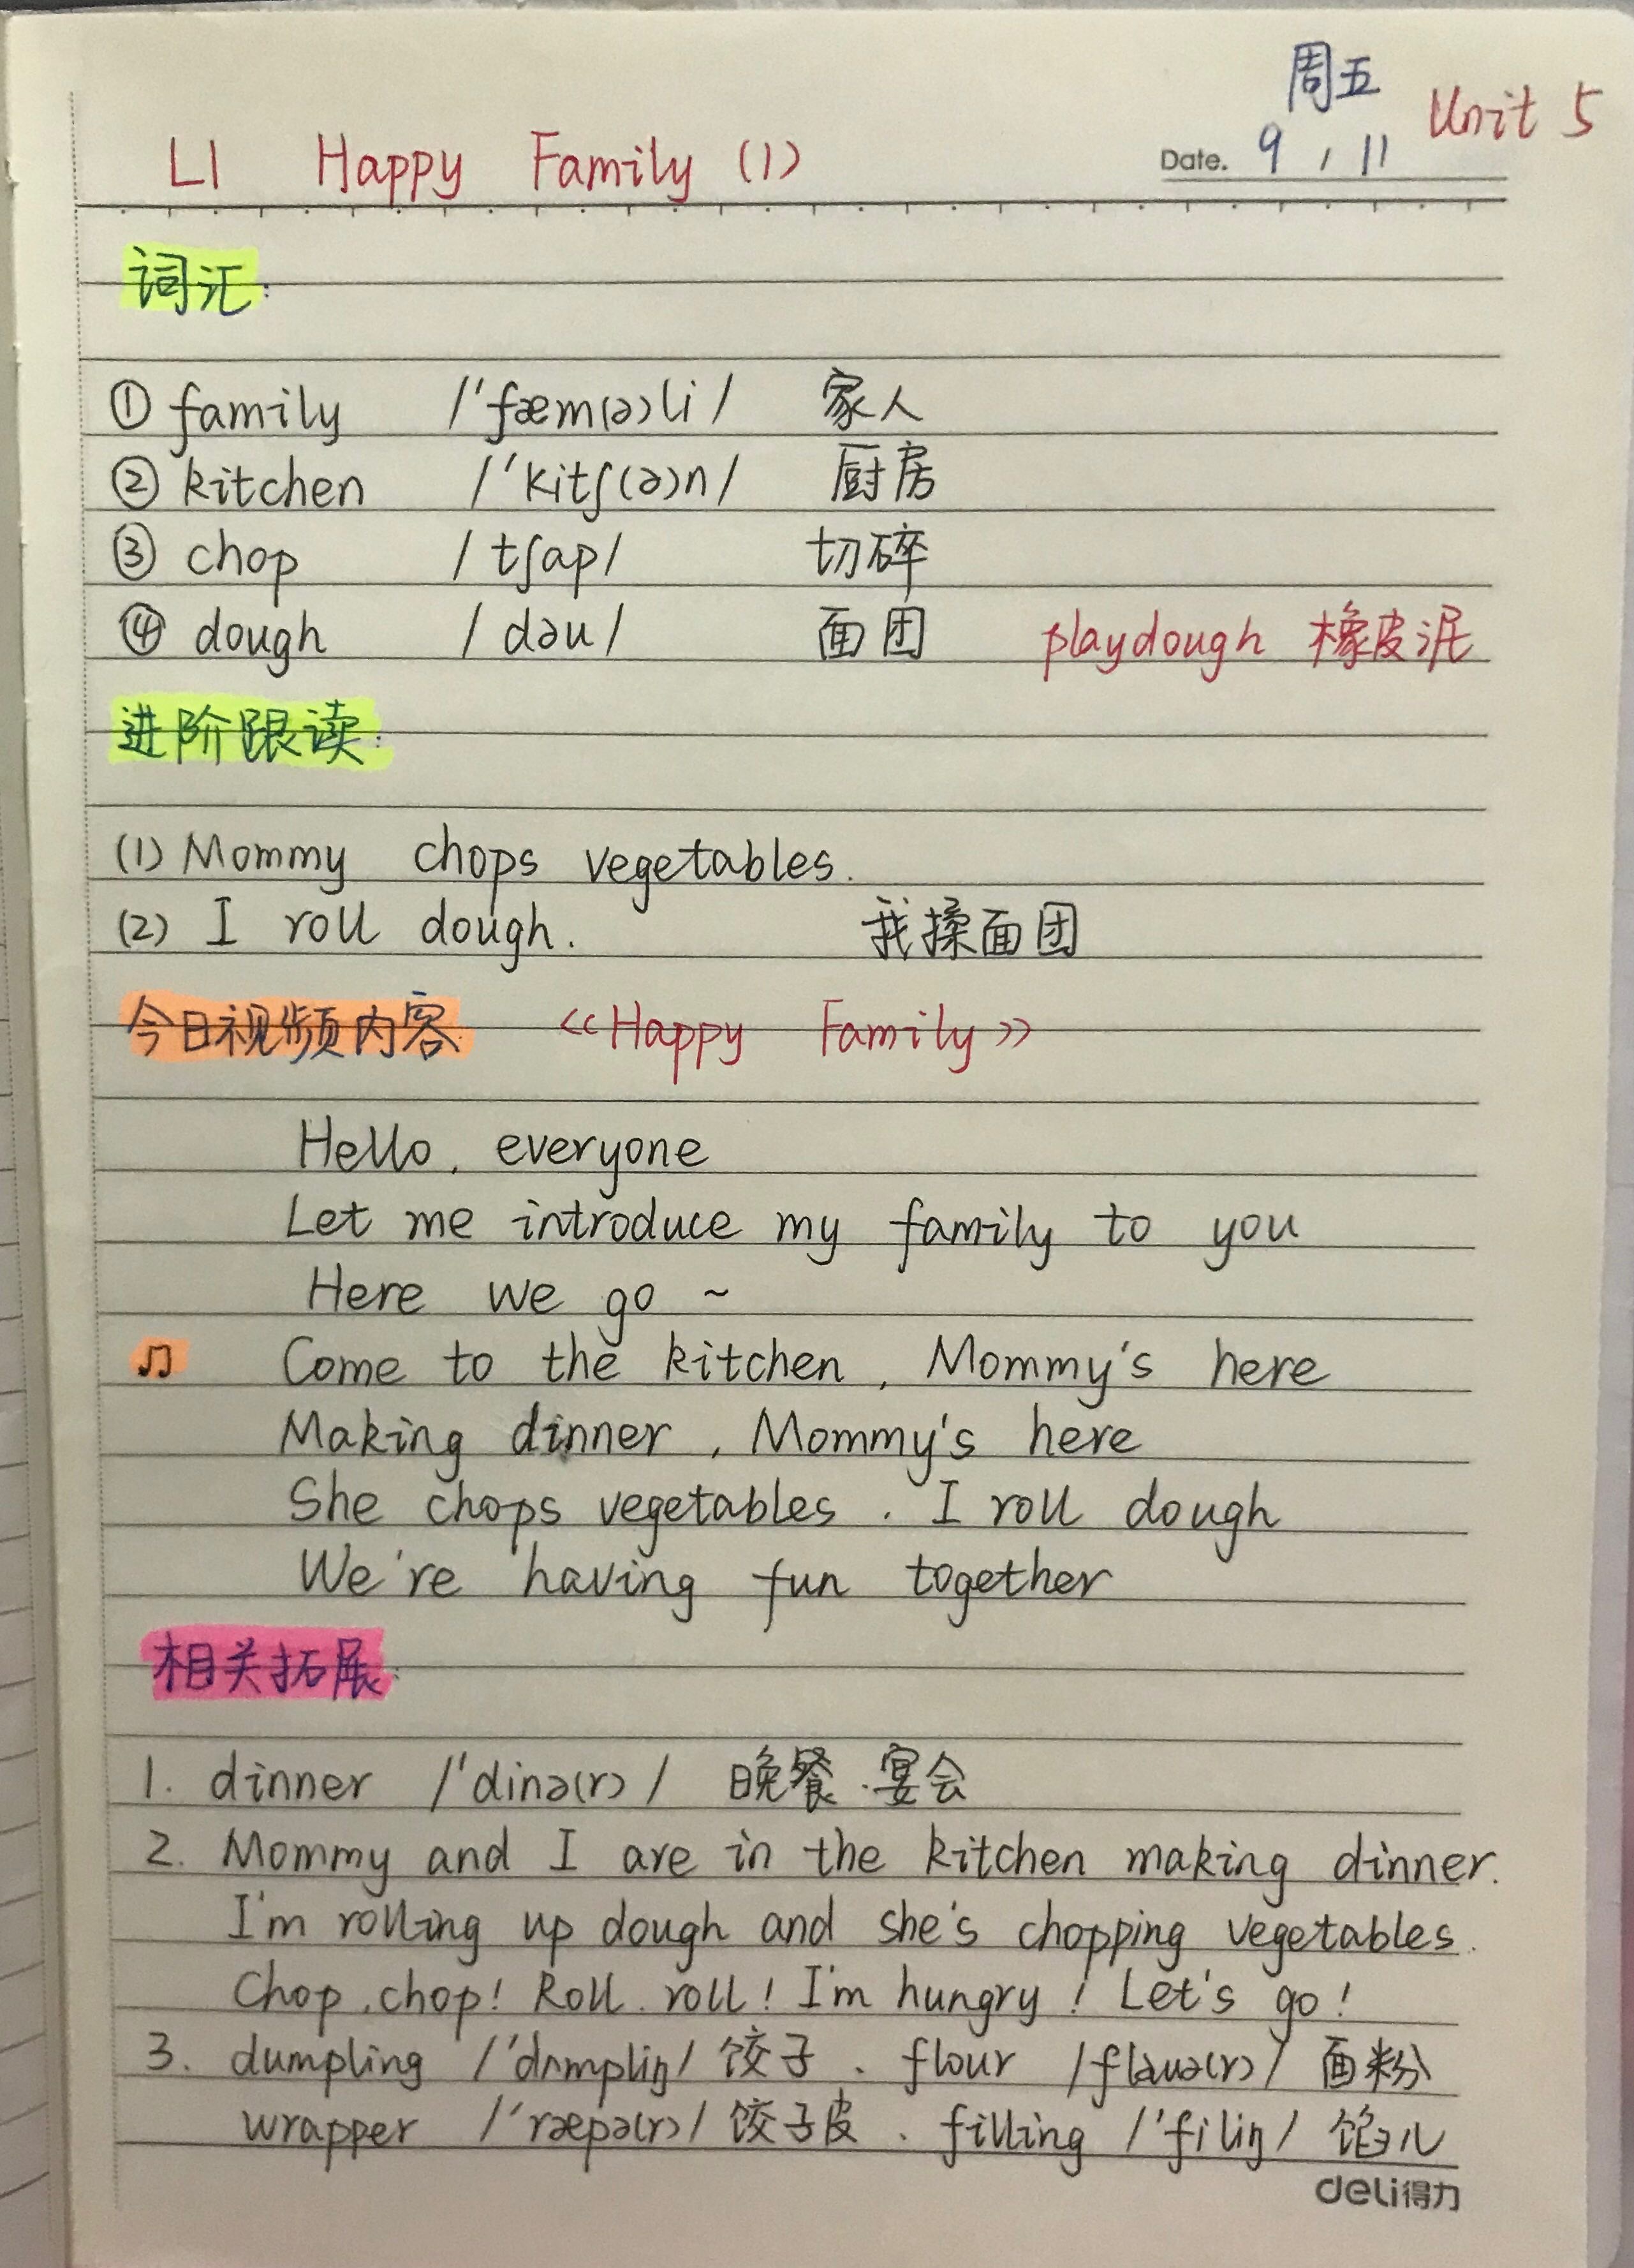 周五
Unit 5
L1 Happy Family (1) Date. 9 / 11
词汇:
① family /'fæm(ə)li/ 家人
② kitchen /'kitʃ(ə)n/ 厨房
③ chop /tʃap/ 切碎
④ dough /dəu/ 面团 playdough 橡皮泥
进阶跟读:
(1) Mommy chops vegetables.
(2) I roll dough. 我揉面团
今日视频内容: <<Happy Family>>
Hello, everyone
Let me introduce my family to you
Here we go ~
♫ Come to the kitchen, Mommy's here
Making dinner, Mommy's here
She chops vegetables. I roll dough
We're having fun together
相关拓展:
1. dinner /'dinə(r)/ 晚餐.宴会
2. Mommy and I are in the kitchen making dinner.
I'm rolling up dough and she's chopping vegetables.
Chop, chop! Roll. roll! I'm hungry! Let's go!
3. dumpling /'dʌmpliŋ/ 饺子. flour /flauə(r)/ 面粉
wrapper /'ræpə(r)/ 饺子皮. filling /'filiŋ/ 馅儿
deli得力